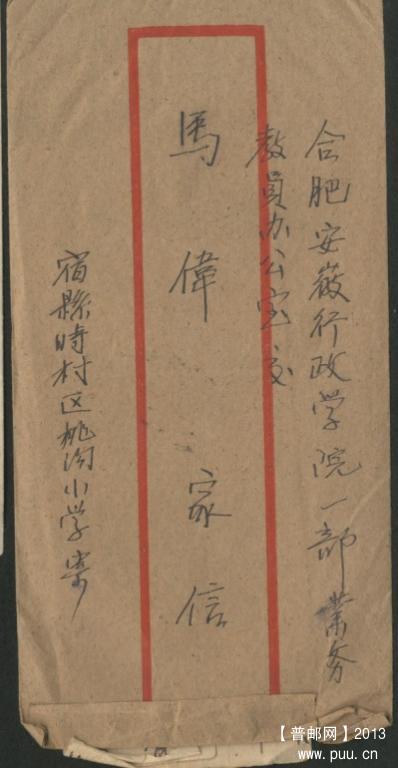 合肥安薇行政学院一部業务
教員办公室交
馬偉家信
宿縣時村区桃沟小学寄
【普邮网】2013
www.puu.cn